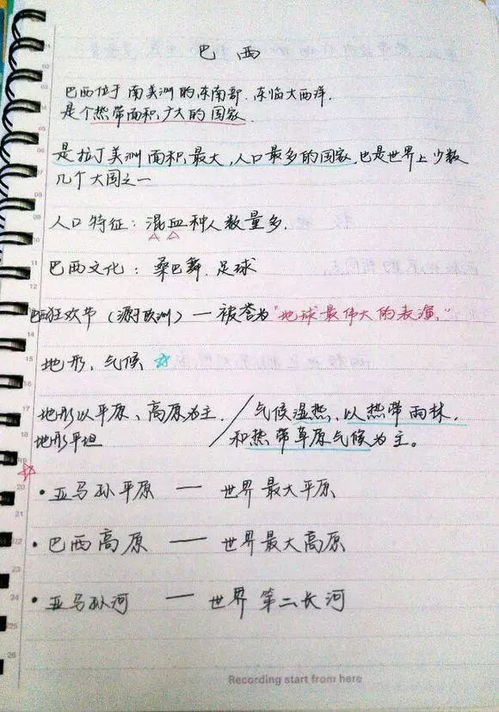 巴西
巴西位于南美洲的东南部.东临大西洋.
是个热带面积广大的国家.
是拉丁美洲面积最大,人口最多的国家,也是世界上少数
几个大国之一
人口特征:混血种人数量多.
巴西文化:桑巴舞.足球
巴西狂欢节(源于欧洲)—被誉为"地球最伟大的表演."
地形、气候 ☆
地形以平原、高原为主. / 气候湿热,以热带雨林.
地形平坦 / 和热带草原气候为主。
·亚马孙平原 — 世界最大平原
·巴西高原 — 世界最大高原
·亚马孙河 — 世界第二长河
Recording start from here